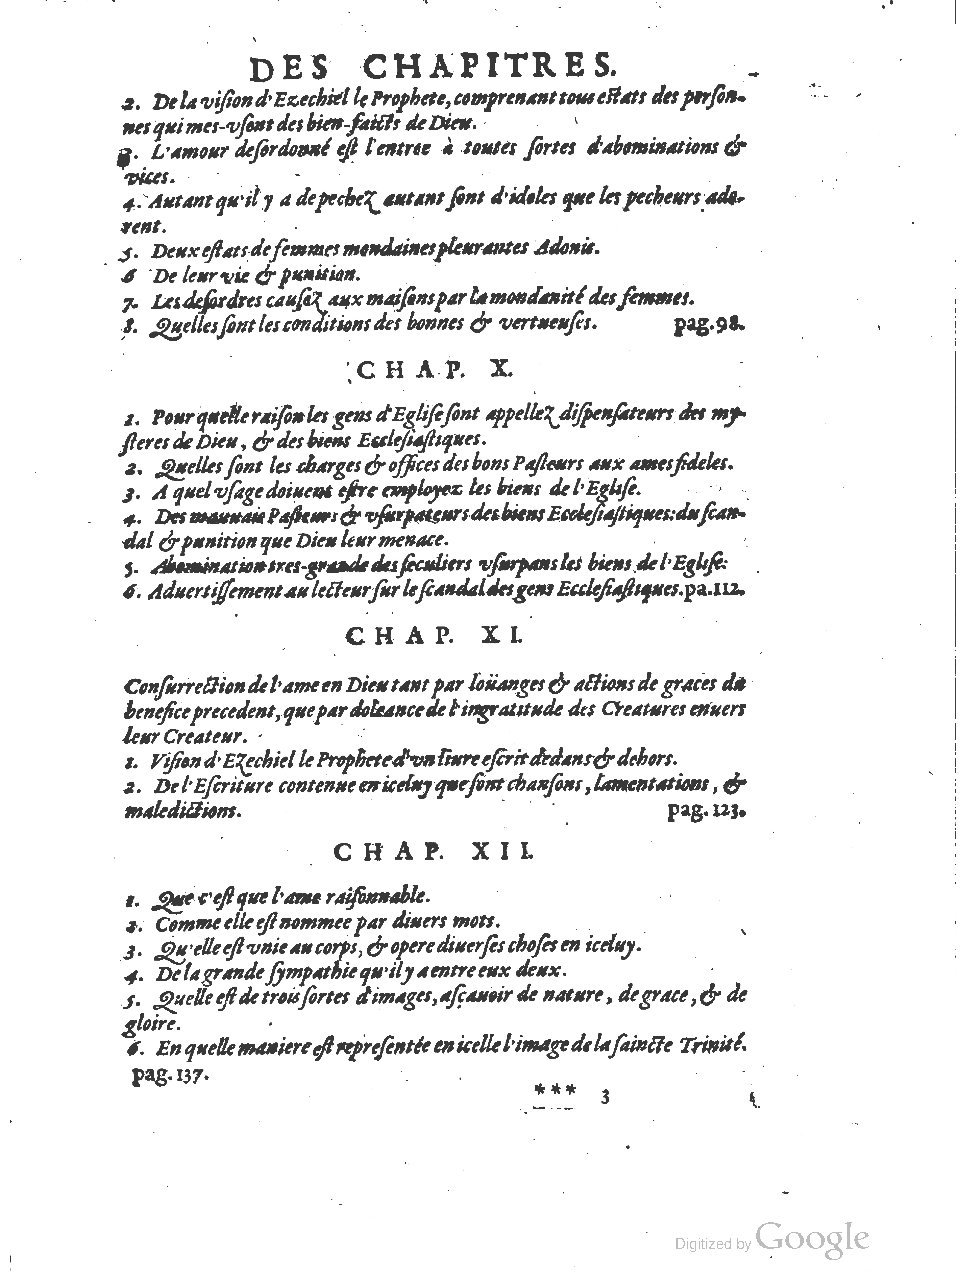 DES CHAPITRES.
2. De la visiõ d'Ezechiel le Prophete, comprenant tous estats des person-
nes qui mes-vsent des bien-faicts de Dieu.
3. L'amour desordonné est l'entree à toutes sortes d'abominations &
vices.
4. Autant qu'il y a de pechez autant sont d'idoles que les pecheurs ado-
rent.
5. Deux estats de femmes mondaines pleurantes Adonis.
6 De leur vie & punition.
7. Les desordres causez aux maisons par la mondanité des femmes.
8. Quelles sont les conditions des bonnes & vertueuses. pag.98.
CHAP. X.
1. Pour quelle raison les gens d'Eglise sont appellez dispensateurs des my-
steres de Dieu, & des biens Ecclesiastiques.
2. Quelles sont les charges & offices des bons Pasteurs aux ames fideles.
3. A quel vsage doiuent estre employez les biens de l'Eglise.
4. Des mauuais Pasteurs & vsurpateurs des biens Ecclesiastiques: du scan-
dal & punition que Dieu leur menace.
5. Abomination tres-grande des seculiers vsurpans les biens de l'Eglise.
6. Aduertissement au lecteur sur le scandal des gens Ecclesiastiques. pa.112.
CHAP. XI.
Consurrection de l'ame en Dieu tant par loüanges & actions de graces du
benefice precedent, que par doleance de l'ingratitude des Creatures enuers
leur Createur.
1. Vision d'Ezechiel le Prophete d'vn liure escrit dedans & dehors.
2. De l'Escriture contenue en iceluy que sont chansons, lamentations, &
maledictions. pag.123.
CHAP. XII.
1. Que c'est que l'ame raisonnable.
2. Comme elle est nommee par diuers mots.
3. Qu'elle est vnie au corps, & opere diuerses choses en iceluy.
4. De la grande sympathie qu'il y a entre eux deux.
5. Quelle est de trois sortes d'images, asçauoir de nature, de grace, & de
gloire.
6. En quelle maniere est representée en icelle l'image de la saincte Trinité.
pag.137.
*** 3
Digitized by Google